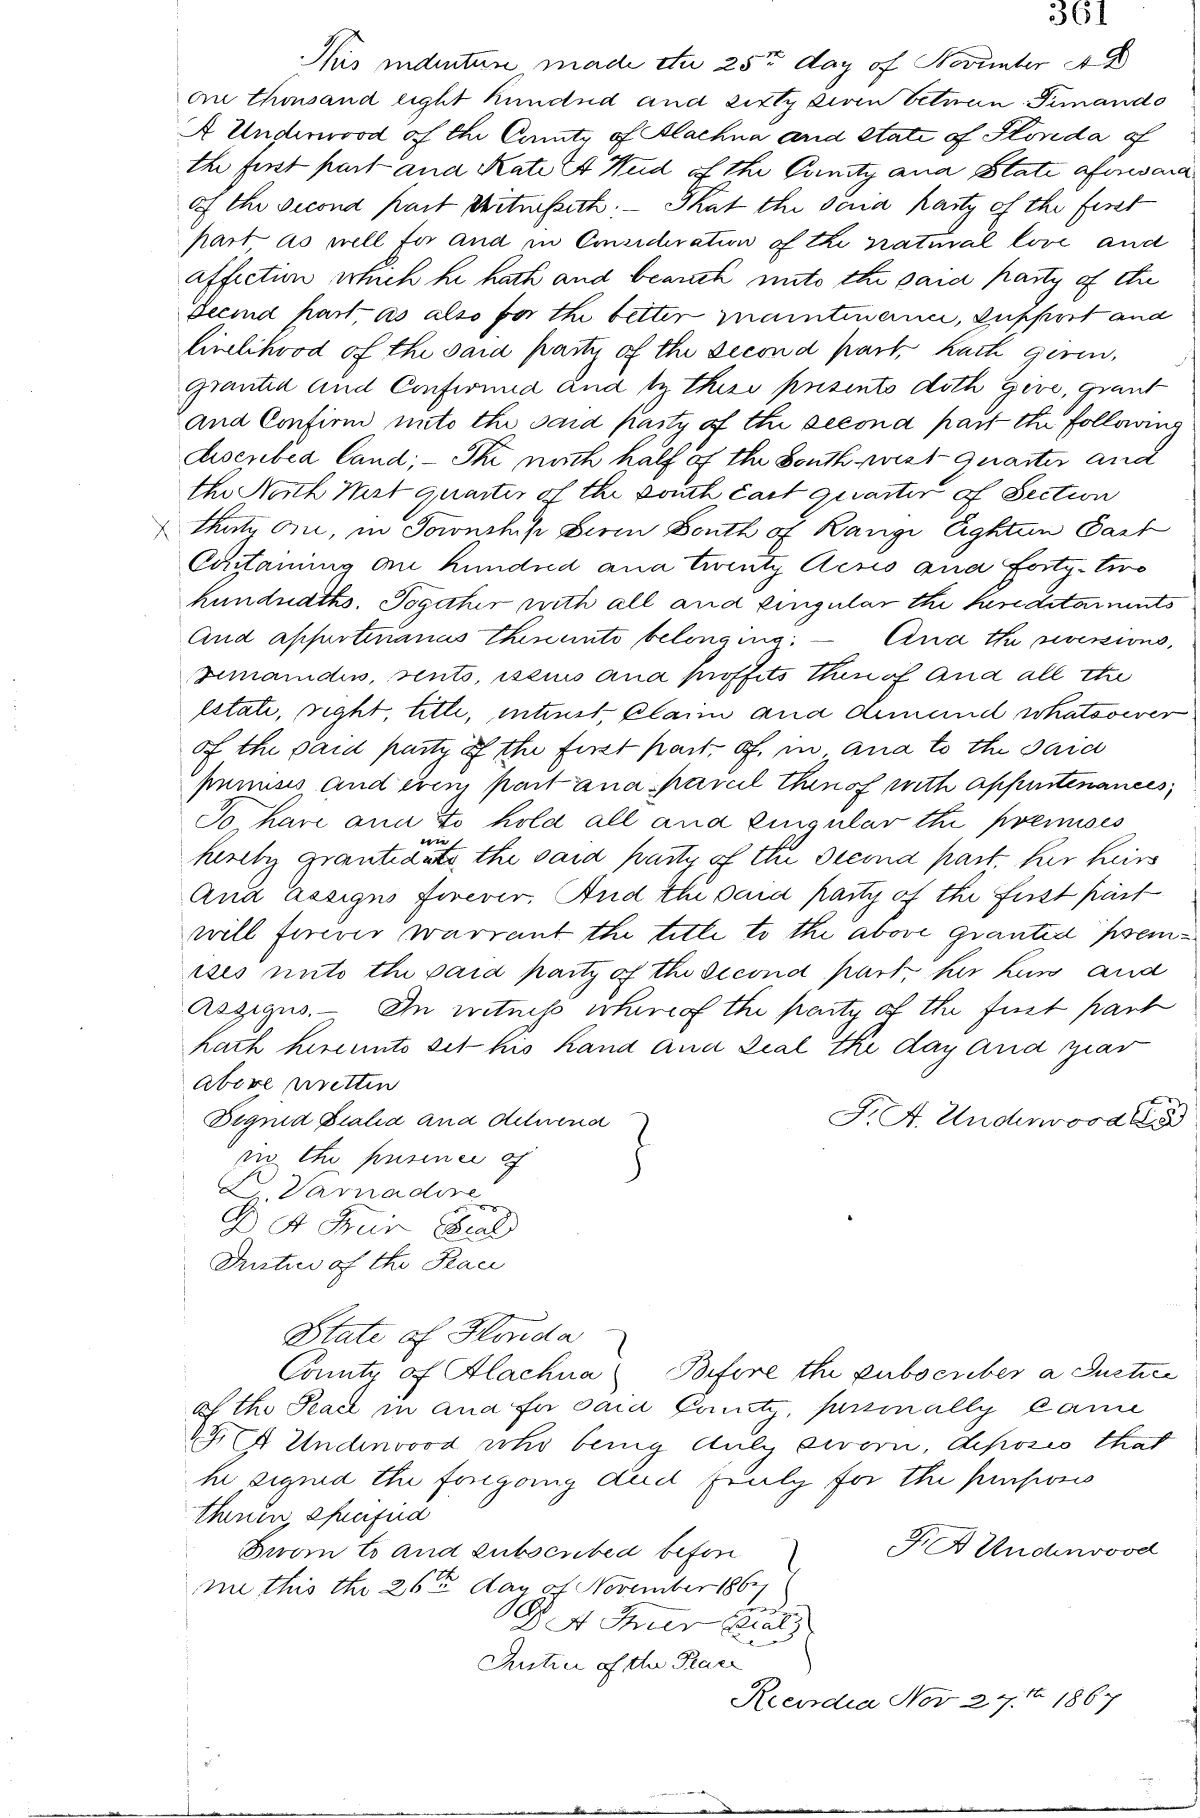 361
This indenture made the 25th day of November A D
one thousand eight hundred and sixty seven between Fernando
A Underwood of the County of Alachua and State of Florida of
the first part and Kate A Weid of the County and State aforesaid
of the second part Witnesseth:- That the said party of the first
part, as well for and in Consideration of the natural love and
affection which he hath and beareth unto the said party of the
second part, as also for the better maintenance, support and
livelihood of the said party of the second part, hath given,
granted and Confirmed and by these presents doth give, grant
and Confirm unto the said party of the second part the following
discribed land;- The north half of the South-west quarter and
the North West quarter of the South East quarter of Section
X thirty one, in Township Seven South of Range Eighteen East
Containing one hundred and twenty Acres and forty-two
hundredths. Together with all and singular the hereditaments
and appertenances thereunto belonging: - And the reversions,
remainders, rents, issues and proffits thereof and all the
estate, right, title, interest, Claim and demand whatsoever
of the said party of the first part, of, in, and to the said
premises and every part and parcel thereof with appurtenances;
To have and to hold all and singular the premises
hereby granted unto the said party of the second part, her heirs
and assigns forever. And the said party of the first part
will forever warrant the title to the above granted prem=
ises unto the said party of the second part, her heirs and
assigns.- In witness whereof the party of the first part
hath hereunto set his hand and seal the day and year
above written
Signed Sealed and delivered } F. A. Underwood L.S.
in the presence of
L. Varnadore
D A Frier Seal
Justice of the Peace
State of Florida
County of Alachua } Before the subscriber a Justice
of the Peace in and for said County, personally Came
F. A Underwood who being duly sworn, deposes that
he signed the foregoing deed freely for the purposes
therein specified
Sworn to and subscribed before } F. A Underwood
me this the 26th day of November 1867
D A Frier Seal
Justice of the Peace
Recorded Nov 27th 1867